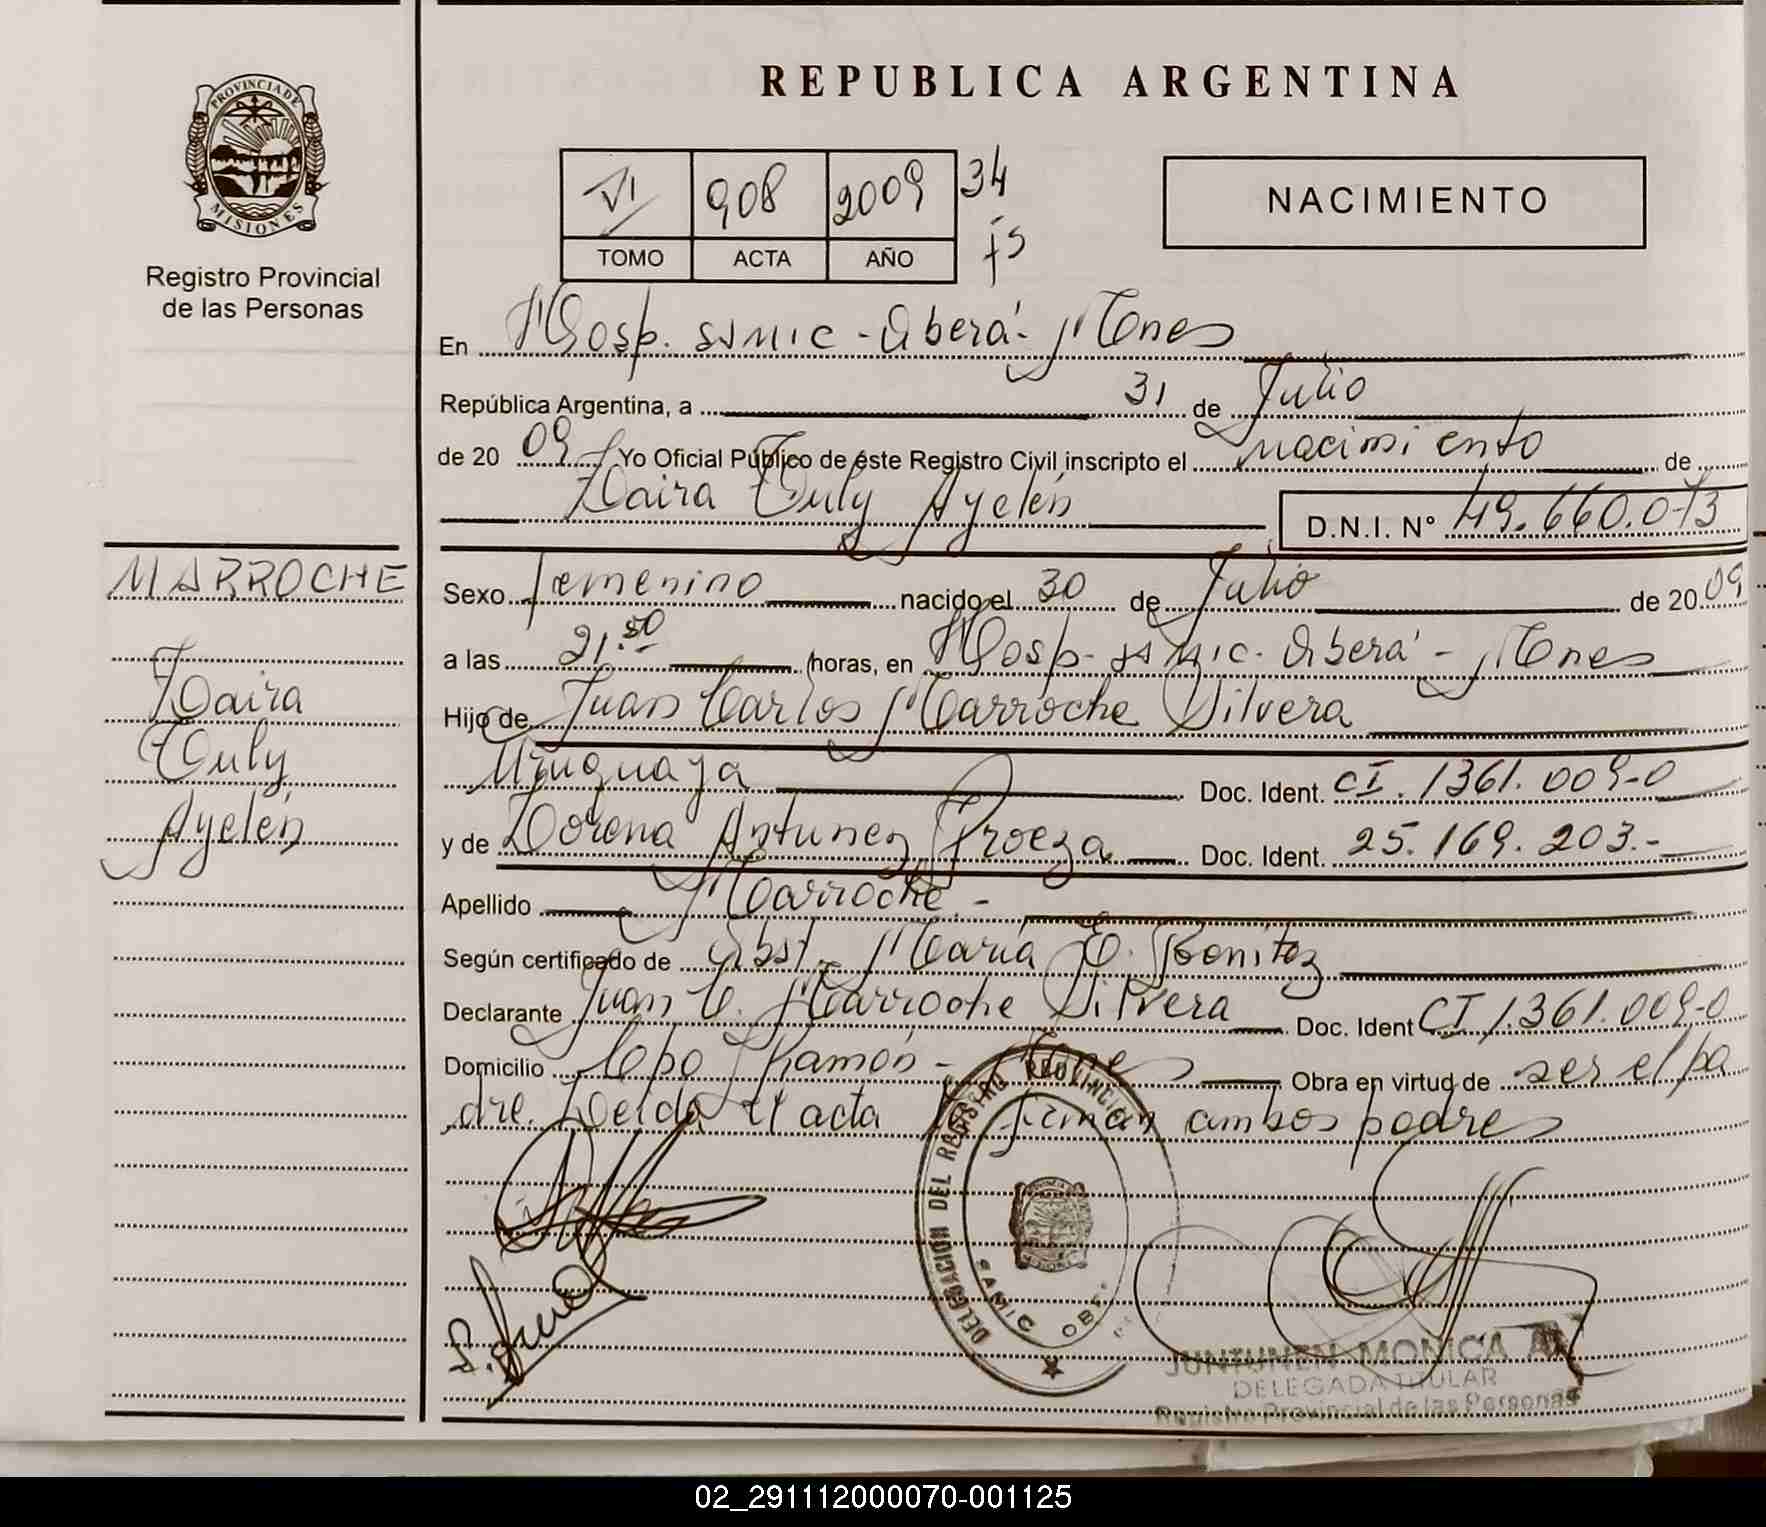 REPUBLICA ARGENTINA
PROVINCIA DE
MISIONES
Registro Provincial
de las Personas
VI 908 2009 34
TOMO ACTA AÑO fs
NACIMIENTO
En Hosp. SAMIC - Oberá - Mnes
República Argentina, a 31 de Julio
de 2009 Yo Oficial Público de éste Registro Civil inscripto el nacimiento de
Zaira Yuly Ayelén D.N.I. N° 49.660.073
MARROCHE
Zaira
Yuly
Ayelén
Sexo femenino nacido el 30 de Julio de 2009
a las 21.50 horas, en Hosp. SAMIC. Oberá - Mnes
Hijo de Juan Carlos Marroche Silvera
Uruguaya Doc. Ident. CI. 1361.009-0
y de Lorena Antunez Proeza Doc. Ident. 25.169.203.-
Apellido Marroche.-
Según certificado de Obst. María E. Benitez
Declarante Juan C. Marroche Silvera Doc. Ident CI 1.361.009-0
Domicilio Cpo Ramón - Mnes Obra en virtud de ser el pa
dre. Leida el acta firman ambos padres
DELEGACION DEL REGISTRO PROVINCIAL
SAMIC OBERA
JUNTUNEN MONICA
DELEGADA TITULAR
Registro Provincial de las Personas
02_291112000070-001125